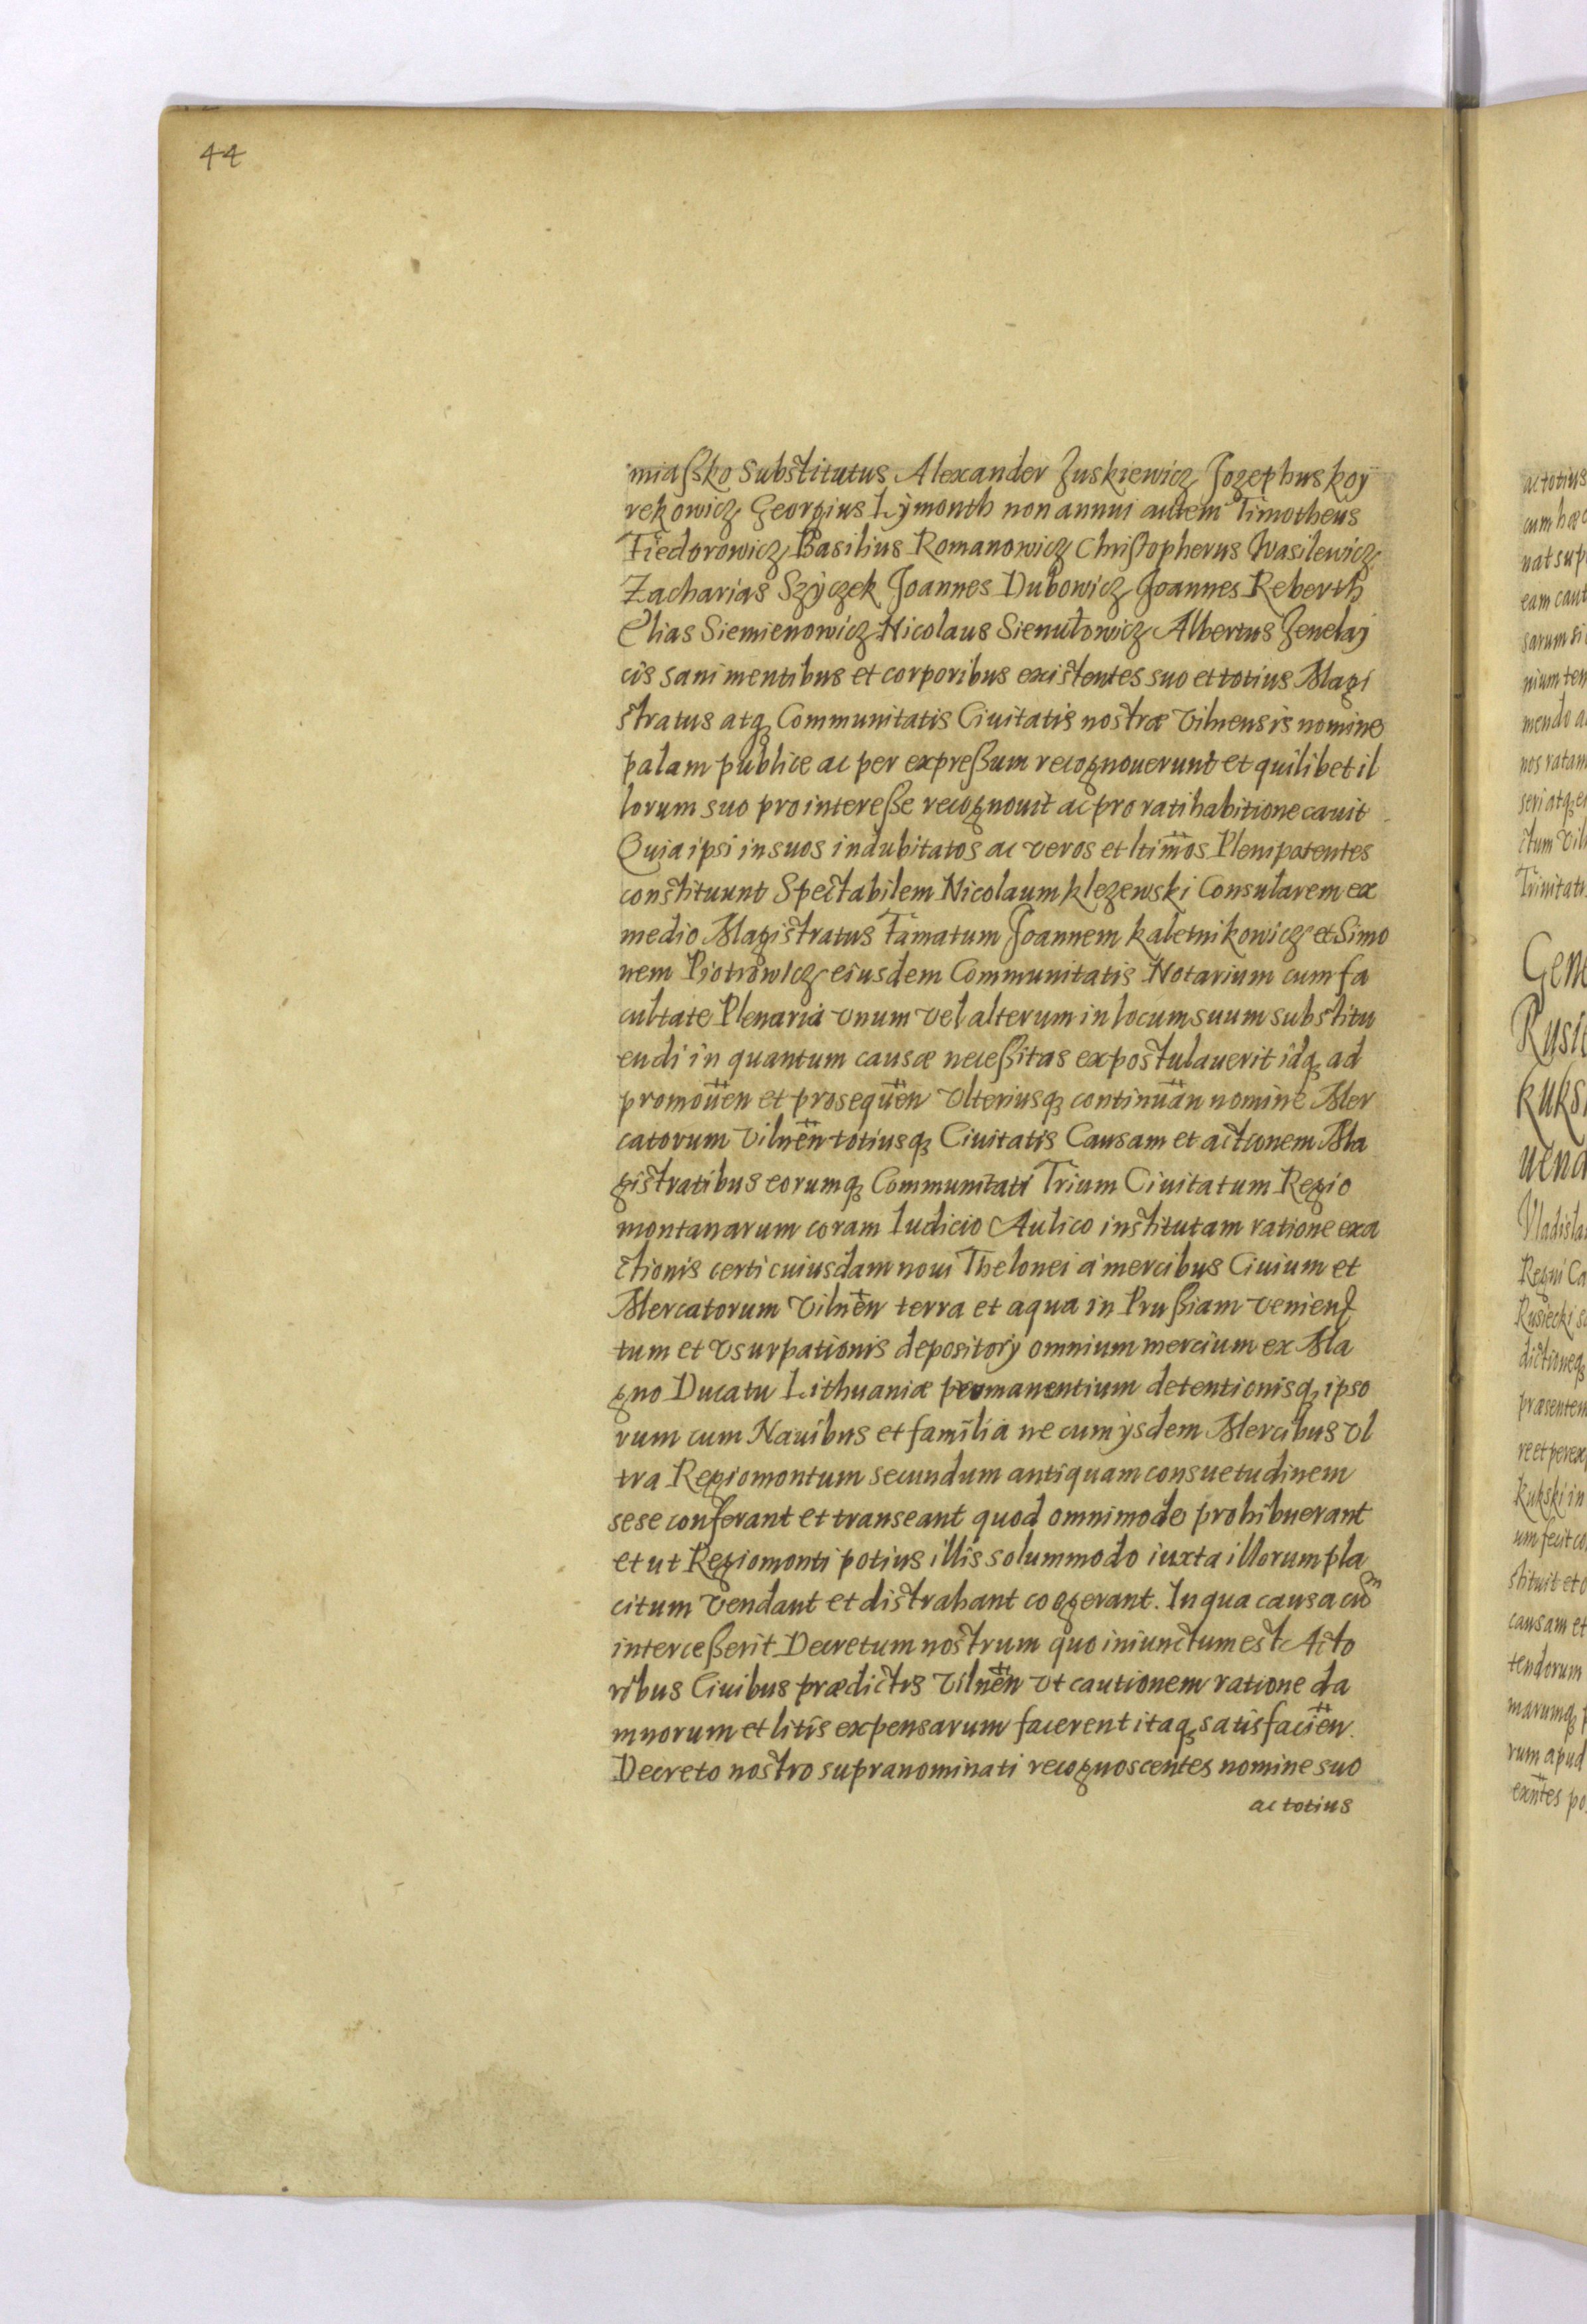 44
miaßko Substitutus Alexander Zuskiewicz Jozephus koÿ
rekowicz Georgius Lÿmonth non annui autem Timotheus
Fiedorowicz Basilius Romanowicz Christopherus Wasilewicz
Zacharias Szÿczek Joannes Dubowicz Joannes Reberth
Elias Siemienowicz Nicolaus Sienułowicz Albertus Zenelaj
cis sani mentibus et corporibus existentes suo et totius Magi
stratus atq Communitatis Ciuitatis nostræ Vilnensis nomine
palam publice ac per expreßum recognouerunt et quilibet il
lorum suo pro intereße recognouit ac pro ratihabitione cauit
Quia ipsi in suos indubitatos ac veros et ltimos Plenipotentes
constituunt Spectabilem Nicolaum klezewski Consularem ex
medio Magistratus Famatum Joannem kaletnikowicz et Simo
nem Piotrowicz eiusdem Communitatis Notarium cum fa
cultate Plenaria vnum vel alterum in locum suum substitu
endi in quantum causæ neceßitas expostulauerit idq ad
promouen et prosequen vlteriusq continuan nomine Mer
catorum Vilnen totiusq Ciuitatis Causam et actionem Ma
gistratibus eorumq Communitati Trium Ciuitatum Regio
montanarum coram Iudicio Aulico institutam ratione exa
ctionis certi cuiusdam noui Thelonei a mercibus Ciuium et
Mercatorum Vilnen terra et aqua in Prußiam venien
tum et vsurpationis depositorÿ omnium mercium ex Ma
gno Ducatu Lithuaniæ promanentium detentionisq ipso
rum cum Nauibus et familia ne cum ÿsdem Mercibus vl
tra Regiomontum secundum antiquam consuetudinem
sese conferant et transeant quod omnimode prohibuerant
et ut Regiomonti potius illis solummodo iuxta illorum pla
citum vendant et distrahant cogerant. In qua causa cum
interceßerit Decretum nostrum quo iniunctum est Acto
ribus Ciuibus prædictis Vilnen vt cautionem ratione da
mnorum et litis expensarum facerent itaq satisfacien
Decreto nostro supranominati recognoscentes nomine suo
ac totius